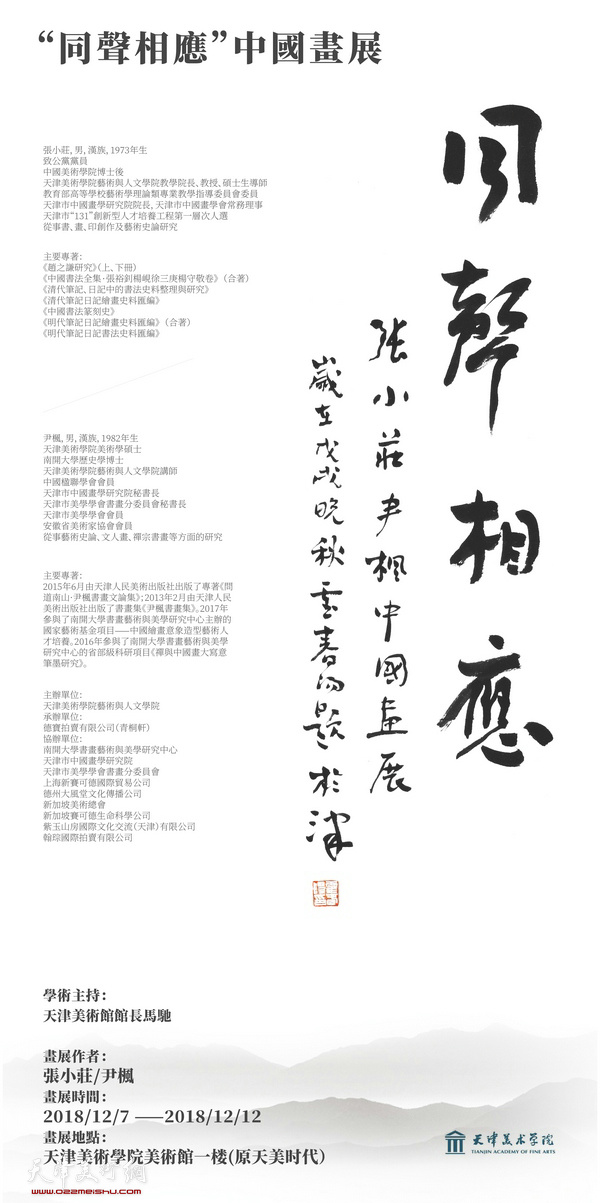 “同聲相應”中國畫展
張小莊,男,漢族,1973年生
致公黨黨員
中國美術學院博士後
天津美術學院藝術與人文學院教學院長、教授、碩士生導師
教育部高等學校藝術學理論類專業教學指導委員會委員
天津市中國畫學研究院院長,天津市中國畫學會常務理事
天津市“131”創新型人才培養工程第一層次人選
從事書、畫、印創作及藝術史論研究
主要專著:
《趙之謙研究》(上、下冊)
《中國書法全集·張裕釗楊峴徐三庚楊守敬卷》(合著)
《清代筆記、日記中的書法史料整理與研究》
《清代筆記日記繪畫史料匯編》
《中國書法篆刻史》
《明代筆記日記繪畫史料匯編》(合著)
《明代筆記日記書法史料匯編》
尹楓,男,漢族,1982年生
天津美術學院美術學碩士
南開大學歷史學博士
天津美術學院藝術與人文學院講師
中國楹聯學會會員
天津市中國畫學研究院秘書長
天津市美學學會書畫分委員會秘書長
天津市美學學會會員
安徽省美術家協會會員
從事藝術史論、文人畫、禪宗書畫等方面的研究
主要專著:
2015年6月由天津人民美術出版社出版了專著《問
道南山·尹楓書畫文論集》;2013年2月由天津人民
美術出版社出版了書畫集《尹楓書畫集》。2017年
參與了南開大學書畫藝術與美學研究中心主辦的
國家藝術基金項目——中國繪畫意象造型藝術人
才培養。2016年參與了南開大學書畫藝術與美學
研究中心的省部級科研項目《禪與中國畫大寫意
筆墨研究》。
主辦單位:
天津美術學院藝術與人文學院
承辦單位:
德寶拍賣有限公司(青桐軒)
協辦單位:
南開大學書畫藝術與美學研究中心
天津市中國畫學研究院
天津市美學學會書畫分委員會
上海新賽可德國際貿易公司
德州大風堂文化傳播公司
新加坡美術總會
新加坡賽可德生命科學公司
紫玉山房國際文化交流(天津)有限公司
翰琮國際拍賣有限公司
同聲相應
張小莊尹楓中國畫展
歲在戊戌晚秋雲春為題於津
學術主持:
天津美術館館長馬馳
畫展作者:
張小莊/尹楓
畫展時間:
2018/12/7 ——2018/12/12
畫展地點:
天津美術學院美術館一楼(原天美时代)
天津美术学院
TIANJIN ACADEMY OF FINE ARTS
天津美術網
www.022meishu.com